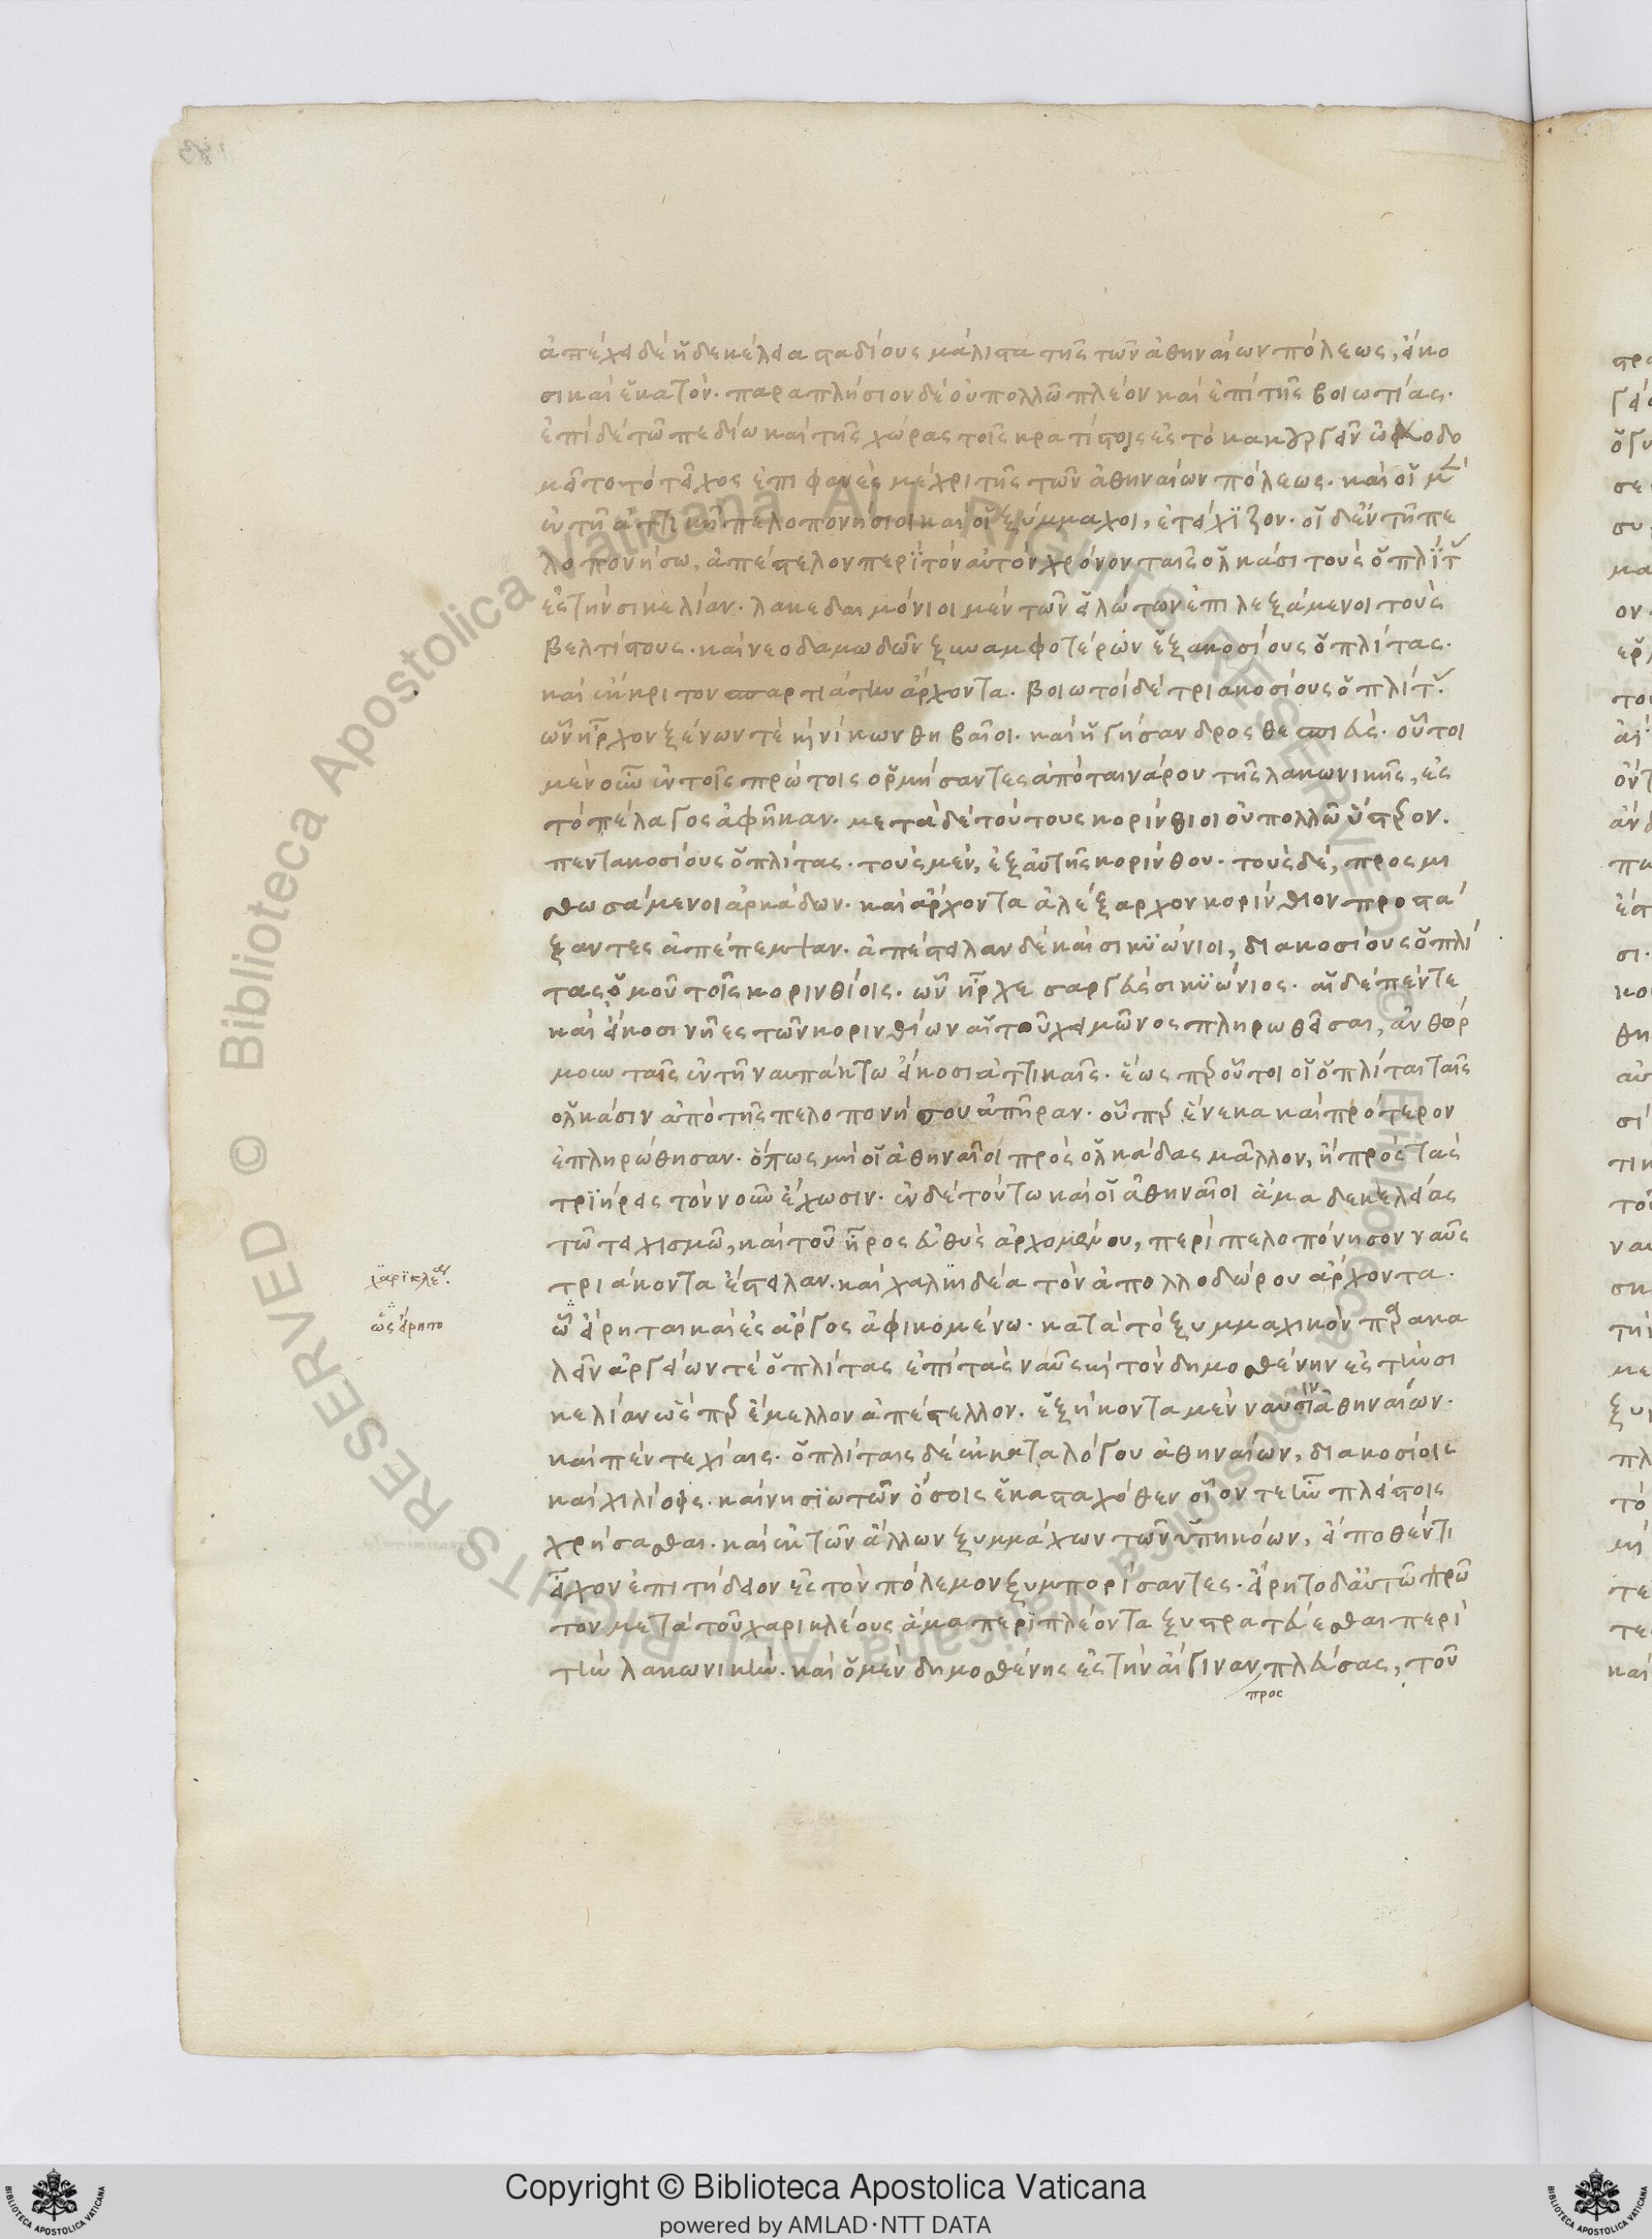 ἀπέχει δὲ ἡ δεκέλεια σταδίους μάλιστα τῆς τῶν ἀθηναίων πόλεως, εἴκο
σι καὶ ἑκατόν. παραπλήσιον δὲ οὐ πολλῶ πλέον καὶ ἐπὶ τῆς βοιωτίας.
ἐπὶ δὲ τῶ πεδίω καὶ τῆς χώρας τοῖς κρατίστοις ἐς τὸ κακουργεῖν ὠκοδο
μεῖτο τὸ τεῖχος ἐπιφανὲς μέχρι τῆς τῶν ἀθηναίων πόλεως. καὶ οἱ μὲν
ἐν τῆ ἀττικῆ πελοπονήσιοι καὶ οἱ ξύμμαχοι, ἐτείχιζον. οἱ δ' ἐν τῆ πε
λοπονήσω, ἀπέστελον περὶ τὸν αὐτὸν χρόνον ταῖς ὁλκάσι τοὺς ὁπλίτ
ἐς τὴν σικελίαν. λακεδαιμόνιοι μὲν τῶν εἱλώτων ἐπιλεξάμενοι τοὺς
βελτίστους. καὶ νεοδαμωδῶν ξυναμφοτέρων ἑξακοσίους ὁπλίτας.
καὶ ἔκκριτον σπαρτιάτην ἄρχοντα. βοιωτοὶ δὲ τριακοσίους ὁπλίτ
ὧν ἦρχον ξένων τὲ καὶ νίκων θηβαῖοι. καὶ ἡγήσανδρος θεσπιεύς. οὗτοι
μὲν οὖν ἐν τοῖς πρώτοις ὁρμήσαντες ἀπὸ ταινάρου τῆς λακωνικῆς, ἐς
τὸ πέλαγος ἀφῆκαν. μετὰ δὲ τούτους κορίνθιοι οὐ πολλῶ ὕστερον.
πεντακοσίους ὁπλίτας. τοὺς μὲν, ἐξ αὐτῆς κορίνθου. τοὺς δὲ, προσμι
σθωσάμενοι ἀρκάδων. καὶ ἄρχοντα ἀλέξαρχον κορίνθιον προστά
ξαντες ἀπέπεμψαν. ἀπέστειλαν δὲ καὶ σικυώνιοι, διακοσίους ὁπλί
τας ὁμοῦ τοῖς κορινθίοις. ὧν ἦρχε σαργεὺς σικυώνιος. αἱ δὲ πέντε
καὶ εἴκοσι νῆες τῶν κορινθίων αἱ τοῦ χειμῶνος πληρωθεῖσαι, ἀνθώρ
μουν ταῖς ἐν τῆ ναυπάκτω εἴκοσι ἀττικαῖς. ἕως περ οὗτοι οἱ ὁπλίται ταῖς
ὁλκάσιν ἀπὸ τῆς πελοπονήσου ἀπῆραν. οὗπερ ἕνεκα καὶ πρότερον
ἐπληρώθησαν. ὅπως μὴ οἱ ἀθηναῖοι πρὸς ὁλκάδας μᾶλλον, ἢ πρὸς τὰς
τριήρεις τὸν νοῦν ἔχωσιν. ἐν δὲ τούτω καὶ οἱ ἀθηναῖοι ἅμα δεκελείας
τῶ τειχισμῶ, καὶ τοῦ ἦρος εὐθὺς ἀρχομένου, περὶ πελοπόνησον ναῦς
χαρικλέα.
τριάκοντα ἔστειλαν. καὶ χαλκιδέα τὸν ἀπολλοδώρου ἄρχοντα.
ὡς εἴρητο
ὧ εἴρηται καὶ ἐς ἄργος ἀφικομένω. κατὰ τὸ ξυμμαχικὸν παρακα
λεῖν ἀργείων τὲ ὁπλίτας ἐπὶ τὰς ναῦς καὶ τὸν δημοσθένην ἐς τὴν σι
κελίαν ὥσπερ ἔμελλον ἀπέστελλον. ἑξήκοντα μὲν ναυσὶν ἀθηναίων.
καὶ πέντε χίαις. ὁπλίταις δὲ ἐκ καταλόγου ἀθηναίων, διακοσίοις
καὶ χιλίοις. καὶ νησιωτῶν ὅσοις ἑκασταχόθεν οἷόν τε ἦν πλείστοις
χρήσασθαι. καὶ ἐκ τῶν ἄλλων ξυμμάχων τῶν ὑπηκόων, εἴ ποθέν τι
εἶχον ἐπιτήδειον ἐς τὸν πόλεμον ξυμπορίσαντες. εἴρητο δ' αὐτῶ πρῶ
τον μετὰ τοῦ χαρικλέους ἅμα περιπλέοντα ξυστρατεύεσθαι περὶ
τὴν λακωνικήν. καὶ ὁ μὲν δημοσθένης ἐς τὴν αἴγιναν πλεύσας, τοῦ
προς
Copyright © Biblioteca Apostolica Vaticana
powered by AMLAD·NTT DATA